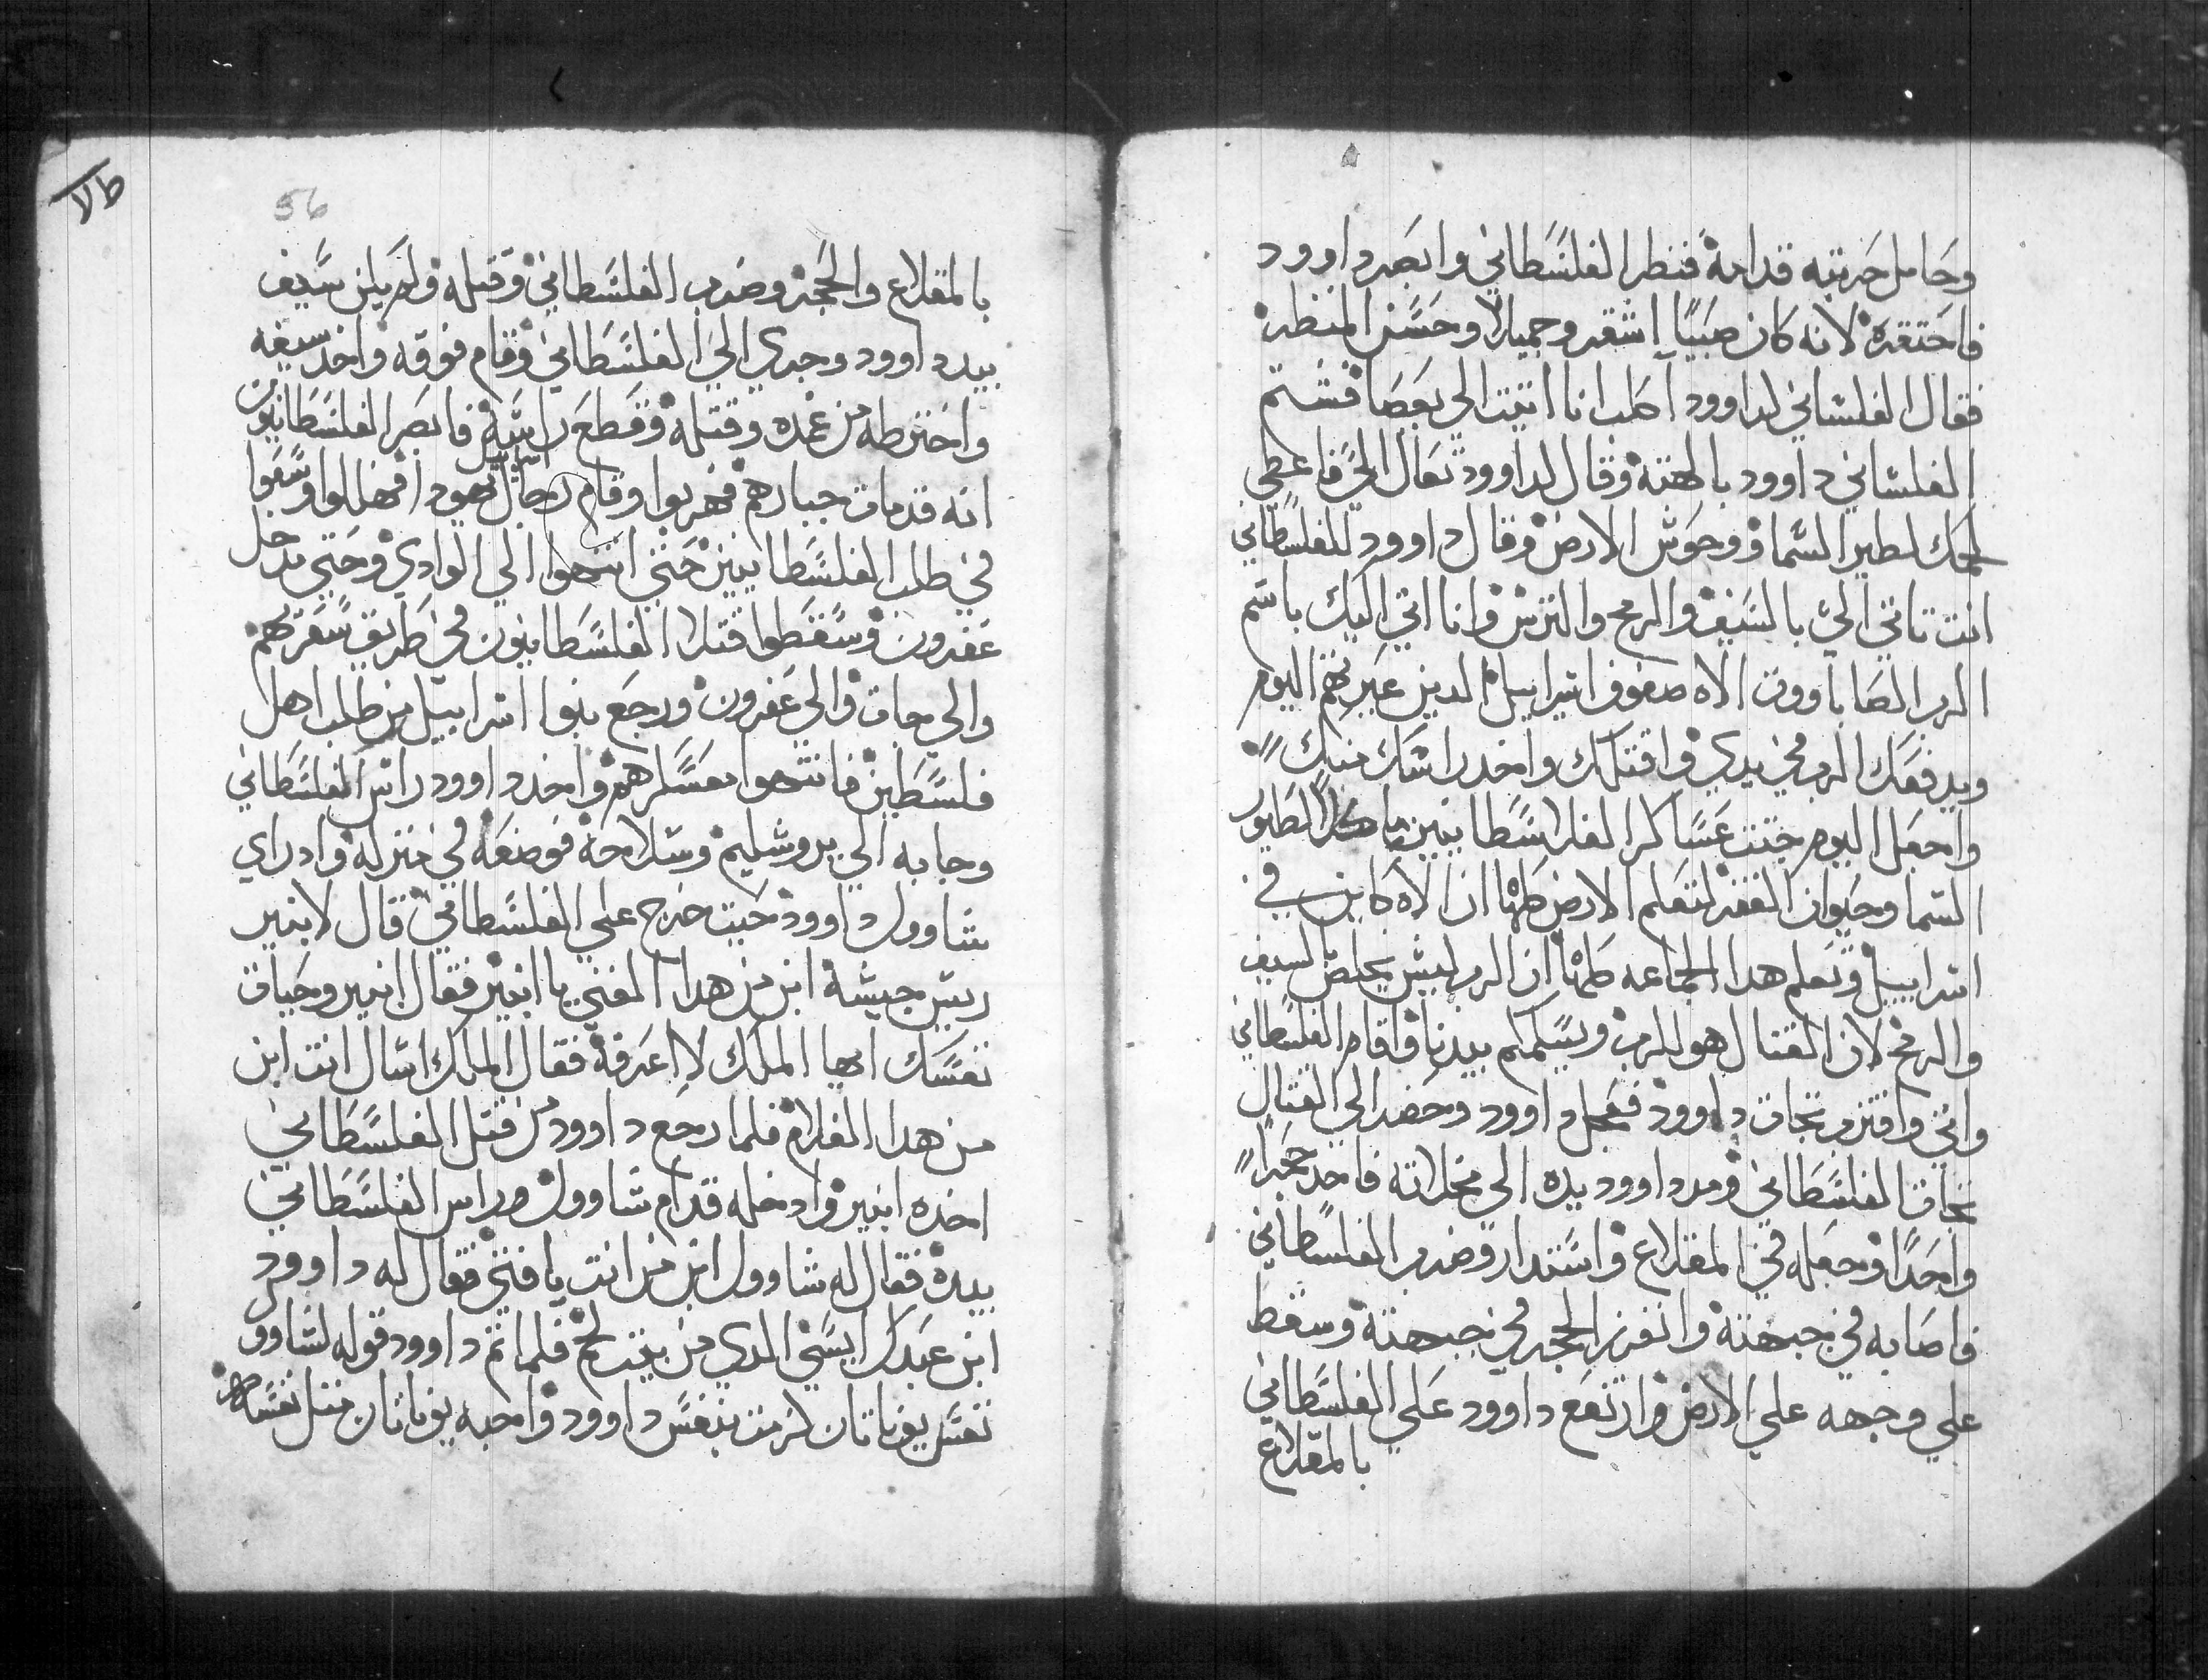 وحامل حربته قدامة فنظر الفلسطاني وابصر داوود
فاحتقرة لانه كان صبيًا اشقر وجميلا وحسن المنظر
فقال الفلساني لداوود اكلب انا اتيت الي بعصا فشتم
الفلساني داوود بالهته وقال لداوود تعال الي فاعطي
لحمك لطير السما ووحوش الارض وقال داوود للفلسطاني
انت تاتي الي بالسيف والرمح والترس وانا اتي اليك باسم
الرب الصاباووت الاه صفوف اسراييل الدين عيرتهم اليوم
ويدفعك الرب في يدي واقتلك واخد راسك منك
واجعل اليوم جتت عساكر الفلسطانيين ماكلا لطيور
السما وحيوان القفر لتعلم الارض كلها ان الاه كاين في
اسراييل وتعلم هدا الجماعه كلها ان الرب ليس يخلص بالسيف
والرمح لان القتال هو للرب ويسلمكم بيدنا وقام الفلسطاني
واتي واقترب تجات داوود فعجل داوود وحضر الي القتال
تجات الفلسطاني ومد داوود يده الي مخلاته فاخد حجرا
واحدا وجعله في المقلاع واستدار وضرب الفلسطاني
فاصابه في جبهتة وانغرز الحجر في جبهتة وسقط
علي وجهه علي الارض وارتفع داوود علي الفلسطاني
بالمقلاع
56
بالمقلاع والحجر وضرب الفلسطاني وقتله ولم يكن سيف
بيد داوود وجري الي الفلسطاني وقام فوقه واخد سيفه
واخترطه من غمده وقتله وقطع راسه فابصر الفلسطانيون
انه قد مات جبارهم فهربوا وقام رجال اسراييل ويهودا فهللوا وسعوا
في طلب الفلسطانيين حتي انتهوا الي الوادي وحتي مدخل
عفرون وسقطوا قتلا الفلسطانيون في طريق سعرتهم
والي جات والي عفرون ورجع بنوا اسراييل من طلب اهل
فلسطين فانتهوا معسكرهم واخد داوود راس الفلسطاني
وجابه الي يروشليم وسلاحة فوضعه في منزله واد راي
شاوول داوود حيت خرج علي الفلسطاني قال لابنير
ريس جيشة ابن من هدا الفتي يا ابنير فقال ابنير وحيات
نفسك ايها الملك لا اعرفة فقال الملك اسال انت ابن
من هدا الغلام فلما رجع داوود من قتل الفلسطاني
اخده ابنير وادخله قدام شاوول وراس الفلسطاني
بيده فقال له شاوول ابن من انت يا فتي فقال له داوود
ابن عبدك ايسي الدي من بيت لحم فلما اتم داوود قوله لشاوول
نفس يوناتان لزمت بنفس داوود واحبه يوناتان متل نفسه